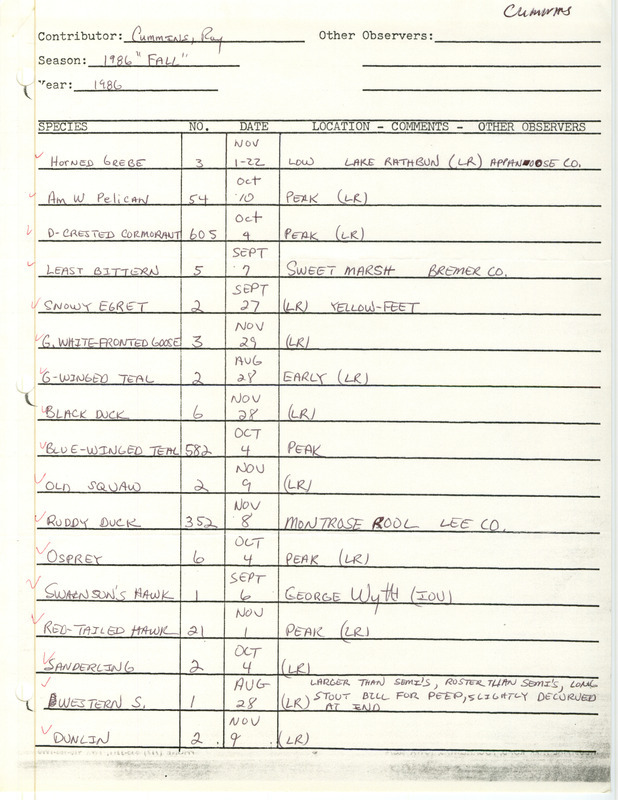 Cummins
Contributor: Cummins, Ray Other Observers:
Season: 1986 "FALL"
Year: 1986
SPECIES NO. DATE LOCATION - COMMENTS - OTHER OBSERVERS
HORNED GREBE 3 NOV 1-22 LOW LAKE RATHBUN (LR) APPANOOSE CO.
AM W PELICAN 54 Oct 10 PEAK (LR)
D-CRESTED CORMORANT 605 Oct 9 PEAK (LR)
LEAST BITTERN 5 SEPT 7 SWEET MARSH BREMER CO.
SNOWY EGRET 2 SEPT 27 (LR) YELLOW-FEET
G. WHITE-FRONTED GOOSE 3 NOV 29 (LR)
G-WINGED TEAL 2 AUG 28 EARLY (LR)
BLACK DUCK 6 NOV 28 (LR)
BLUE-WINGED TEAL 582 OCT 4 PEAK
OLD SQUAW 2 NOV 9 (LR)
RUDDY DUCK 352 NOV 8 MONTROSE POOL LEE CO.
OSPREY 6 OCT 4 PEAK (LR)
SWAINSON'S HAWK 1 SEPT 6 GEORGE Wyth (IOU)
RED-TAILED HAWK 21 NOV 1 PEAK (LR)
SANDERLING 2 OCT 4 (LR)
WESTERN S. 1 AUG 28 (LR) LARGER THAN SEMI'S, ROSTER THAN SEMI'S, LONG
STOUT BILL FOR PEEP, SLIGHTLY DECURVED
AT END
DUNLIN 2 NOV 9 (LR)